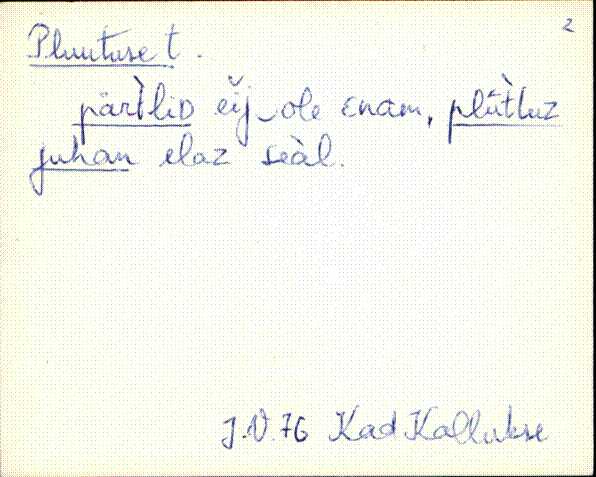 2
Pluutuse t.
pär̀tliᴅ eĭj‿ole enam, plūt̀tuz
juhan elaz seàl.
J.V.76 Kad Kallukse